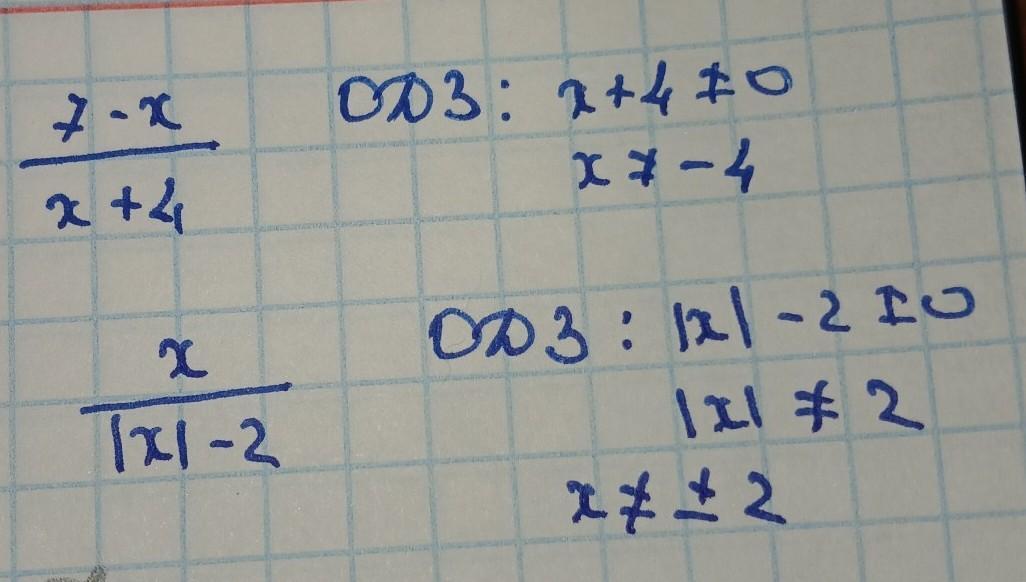 7 - x
x + 4
ОДЗ: x + 4 ≠ 0
x ≠ - 4
x
|x| - 2
ОДЗ: |x| - 2 ≠ 0
|x| ≠ 2
x ≠ ± 2